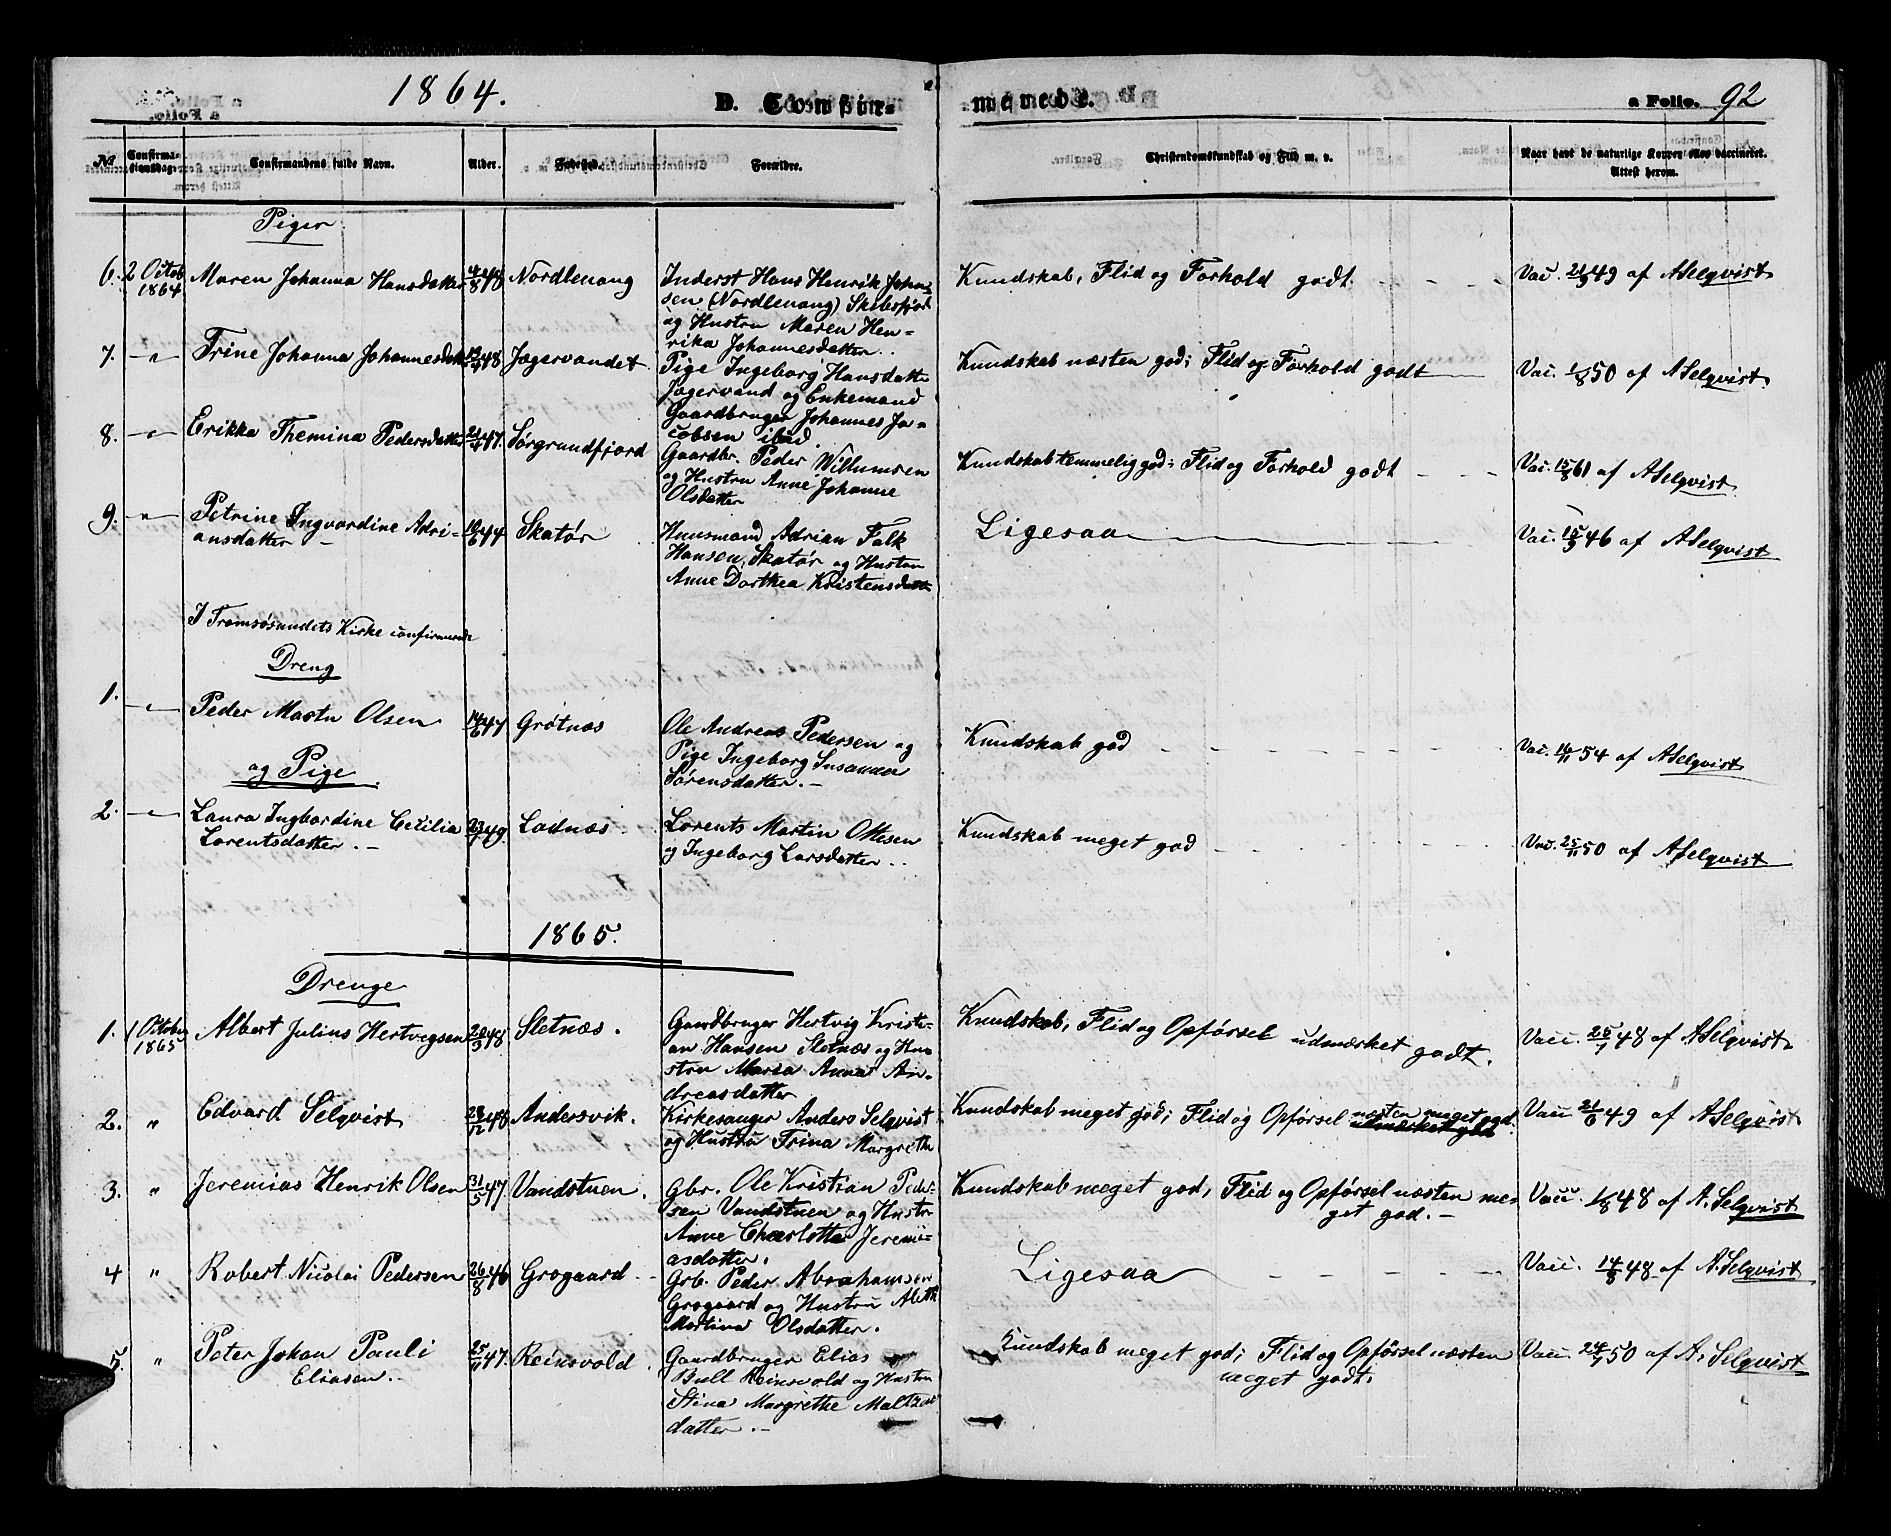 1864.
D. Confir-
merede.
a Folio. 92
No.
Confirmationsdag.
Confirmandens fulde Navn.
Alder.
Fødested.
Forældre.
Christendomskundskab og Flid m. v.
Naar havt de naturlige Kopper eller vaccineret. Attest herom.
Piger
6. 2 Octob 1864 Maren Johanna Hansdatter 4/8 48 Nordlenang
Inderst Hans Henrik Johan-
sen (Nordlenang) Skibsfjord
og Hustru Maren Hen-
rika Johannesdatter..
Kundskab, Flid og Forhold godt
Vac. 49 af ASelqvist
7. -"- Trine Johanna Johannesdatt 48 Jægervandet
Pige Ingeborg Hansdatter
Jægervand og Enkemand
Gaardbruger Johannes Ja-
cobsen ibid.
Kundskab næsten god; Flid og Forhold godt
Vac. 1/8 50 af ASelqvist
8. -"- Erikka Themina Pedersdatter 47. Sørgrundfjord
Gaardbr. Peder Willumsen
og Hustru Anne Johanne
Olsdatter
Kundskab temmelig god; Flid og Forhold godt
Vac. 15/8 61 af ASelqvist
9. -"- Petrine Ingvardine Adri-
ansdatter - 44 Skatør
Huusmand Adrian Falk
Hansen, Skatør og Hustru
Anne Dorthea Kristensdatt
Ligesaa
Vac. 46 af ASelqvist
I Tromsøsundets Kirke confirmerede
Dreng
1. -"- Peder Martin Olsen 14/6 47 Grøtnæs
Ole Andreas Pedersen og
Pige Ingeborg Susanna
Sørensdatter. -
Kundskab god
Vac. 54 af ASelqvist
og Pige
2. -"- Laura Ingbardine Cecilia
Lorentsdatter. - 49. Ladnæs
Lorents Martin Ottesen
og Ingeborg Larsdatter..
Kundskab meget god
Vac. 25/11 50 af ASelqvist
1865.
Drenge
1. 1 October 1865 Albert Julius Hertvigsen 48 Sletnæs.
Gaardbruger Hertvig Kristi-
an Hansen Sletnæs og Hu-
stru Maria Anna An-
dreasdatter
Kundskab, Flid og Opførsel udmærket godt.
Vacc. 48 af ASelqvist
2. " Edvard Selqvist 48 Andersvik.
Kirkesanger Anders Selqvist
og Hustru Trina Margrethe
Kundskab meget god; Flid og Opførsel næsten meget god.
udmærket godt
Vacc 21/6 49 af ASelqvist
3. " Jeremias Henrik Olsen 31/5 47. Vandstuen.
Gbr. Ole Kristian Peder-
sen Vandstuen og Hustru
Anne Charlotte Jeremi-
asdatter.
Kundskab meget god, Flid og Opførsel næsten me-
get god. -
Vacc. 1/8 48 af A. Selqvist
4 " Robert Nicolai Pedersen 26/8 46 Grøgaard
Grb. Peder Abrahamsen
Grøgaard og Hustru Aleth
Martina Olsdatter.
Ligesaa
Vacc. 14/8 48 af A. Selqvist
5. " Peter Johan Pauli
Eliasen.. 47. Reinsvold
Gaardbruger Elias
Bull Reinsvold og Hustru
Stina Margrethe Maltzens
datter. -
Kundskab meget god; Flid og Opførsel næsten
meget godt.
Vacc. 50 af A. Selqvist